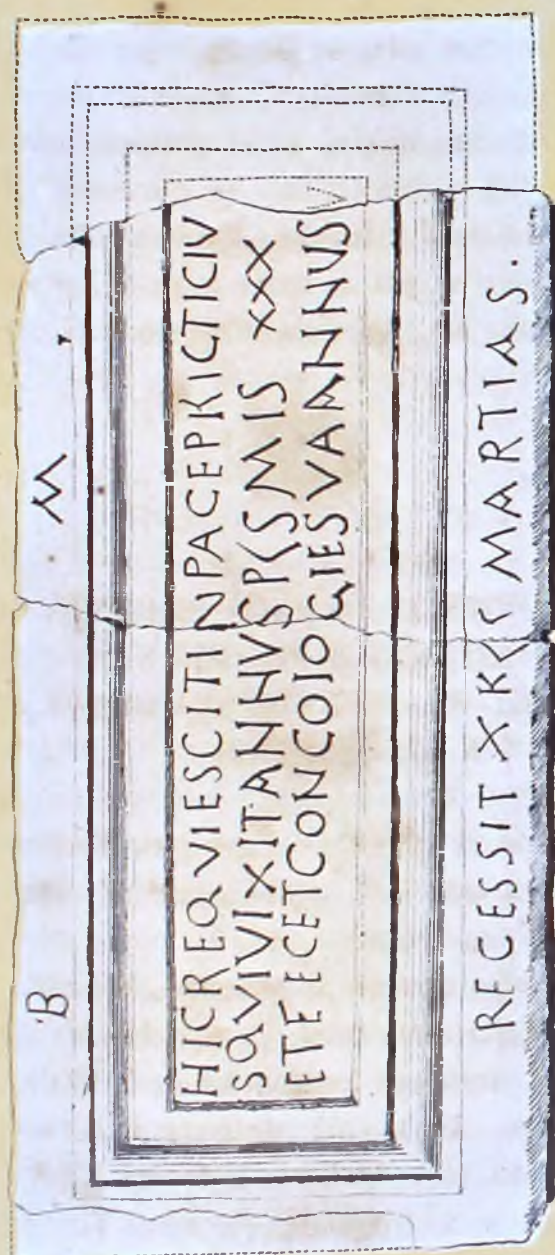 ·B M
HICREQVIESCITINPACEPKICTICIV
SQVIVIXITANNVSPLSMIS XXX
ETE ECETCONCOIOGIESVAANNVS
RECESSIT X KLS MARTIAS.